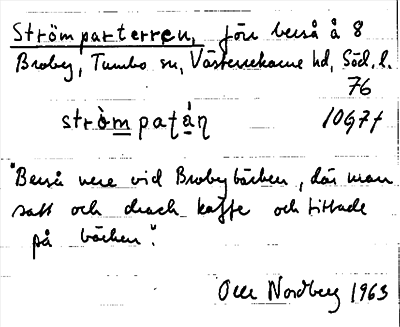 Strömparterren, förr berså å 8
Broby, Tumbo sn, Västerrekarne hd, Söd. l.
76
strò̀m patáṇ 10977
"Berså nere vid Brobybäcken, där man
satt och drack kaffe och tittade
på bäcken".
Olle Nordberg 1963